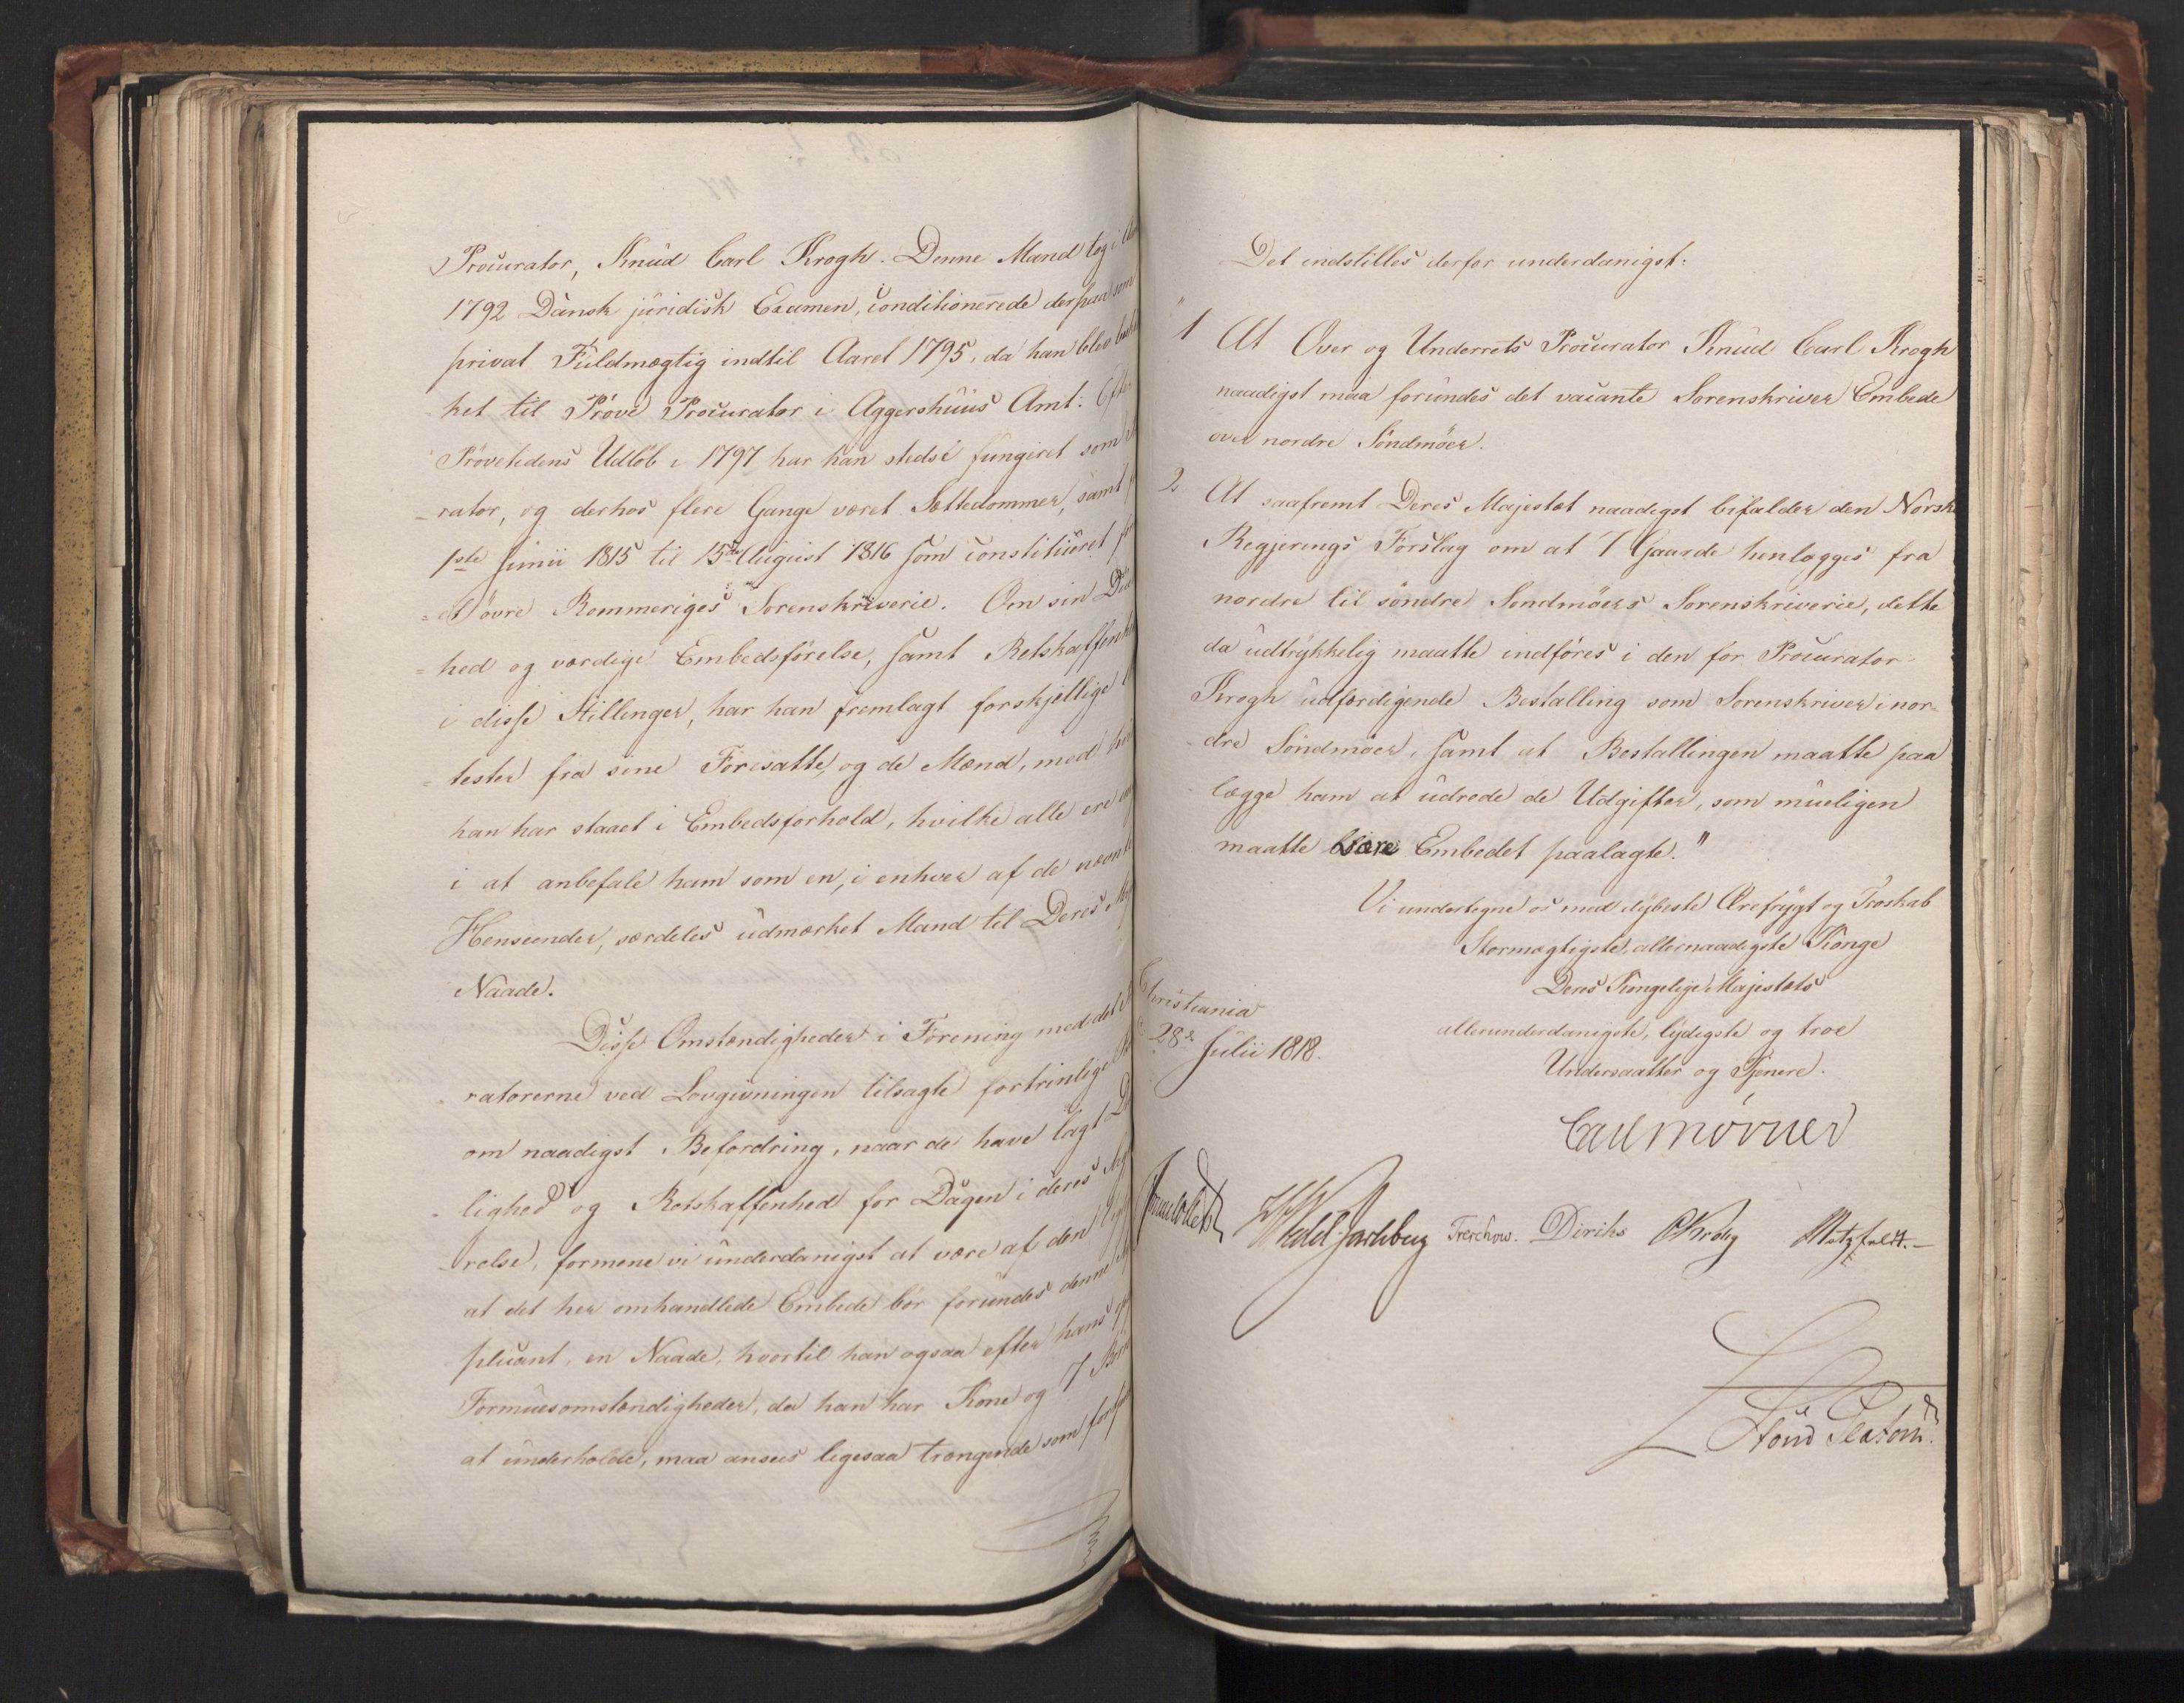 Procurator, Knud Carl Krogh. Denne Mand tog i
1792 Dansk juridisk Examen, conditionerede derpaa som
privat Fuldmægtig indtil Aaret 1795, da han blev
ket til Prøve Procurator i Aggershuus Amt. Efter
Prøvetidens Udløb i 1797 har han stedse fungeret som
-rator, og derhos flere Gange været Sættedommer, samt
1ste Junii 1815 til 15de August 1816 som constitueret
øvre Rommeriges Sorenskriverie. Om sin
=hed og værdige Embedsførelse, samt Retskaffenhed
i disse Stillinger, har han fremlagt forskjellige
=tester fra sine Foresatte, og de Mænd, med
han har staaet i Embedsforhold, hvilke alle ere
i at anbefale ham som en, i enhver af de nævnte
Henseender, særdeles udmærket Mand til Deres
Naade.
Disse Omstændigheder i Forening med
-ratorerne ved Lovgivningen tilsagte fortrinlige
om naadigst Befordring, naar de have lagt
-lighed og Retskaffenhed for Dagen i deres
-relse, formene vi underdanigst at være af den
at det her omhandlede Embede bør forundes denne
plicant, en Naade, hvortil han ogsaa efter hans
Formuesomstændigheder, da han har Kone og 7 Børn
at underholde, maa ansees ligesaa trængende som
Det indstilles derfor underdanigst:
"1 At Over og Underrets Procurator Knud Carl Krogh
naadigst maa forundes det vacante Sorenskriver Embede
over nordre Søndmøer.
2 At saafremt Deres Majestæt naadigst bifalder den Norske
Regjerings Forslag om at 7 Gaarde henlægges fra
nordre til søndre Søndmøers Sorenskriverie, dette
da udtrykkelig maatte indføres i den for Procurator
Krogh udfærdigende Bestalling som Sorenskriver i nor-
dre Søndmøer, samt at Bestallingen maatte paa
lægge ham at udrede de Udgifter, som mueligen
maatte være Embedet paalagte."
Vi undertegne os med dybeste Ærefrygt og Troskab
Stormægtigste, allernaadigste Konge
Deres Kongelige Majestæts
allerunderdanigste, lydigste og troe
Undersaatter og Tjenere.
Christiania
28de Julii 1818.
Carl Mörner
Jonas Collett Wedel-Jarlsberg Treschow. Diriks CKrohg Motzfeldt.-